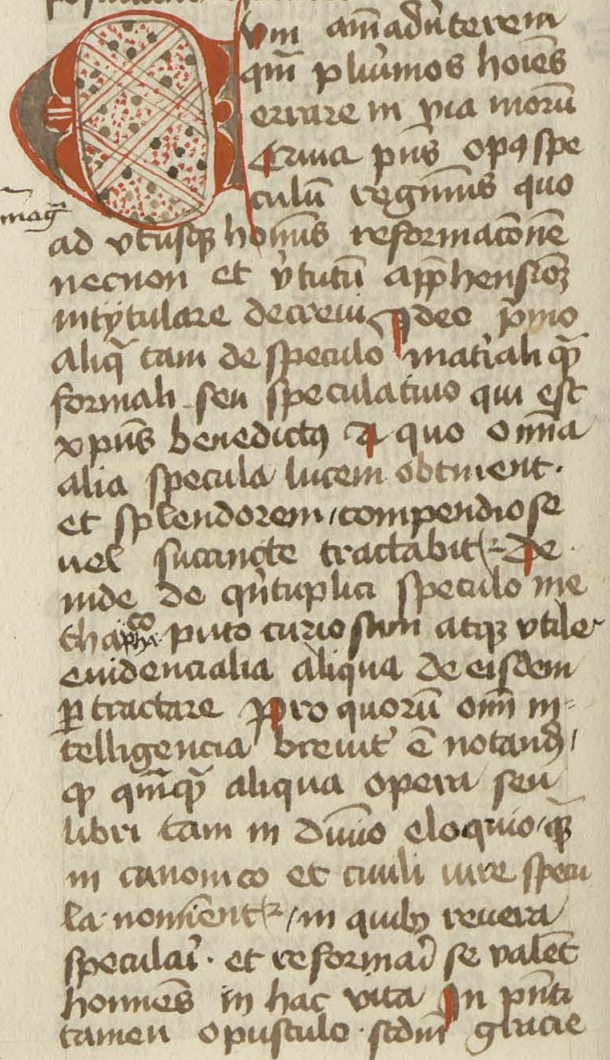 Vm aīaduͥterem
qm̄ pluͥmos hoīes
errare in via morū
Craua pn̄s opꝯ spe
culū regīmīs quo
ad vtriusqꝫ homīs reformacōnē
necnon et vͥtutū app̄hensiōꝫ
intytulare decreui Ideo pͥmo
aliq̄ tam de speculo mat̄iali qͣꝫ
formali seu speculatiuo qui est
xp̄us benedictꝰ a quo omīa
alia specula lucem obtinent·
et splendorem compendiose
uel succincte tractabit̉ De
inde de qͥntuplici speculo me
thaphaco puto curiosum atqꝫ vtile
euidencialia aliqua de eisdem
ꝑtractare Pro quorū om̄i in
telligencia breuit̉ ē notandꝫ
ꝙ qm̄qͣꝫ aliqua opera seu
libri tam in diuīo eloquio qͣꝫ
in canonico et ciuili iure specu
la nomīent̉ in quibꝫ reuera
speculaī· et reformaī se valēt
homines in hac vita In pn̄ti
tamen opusculo scd̄m gracie